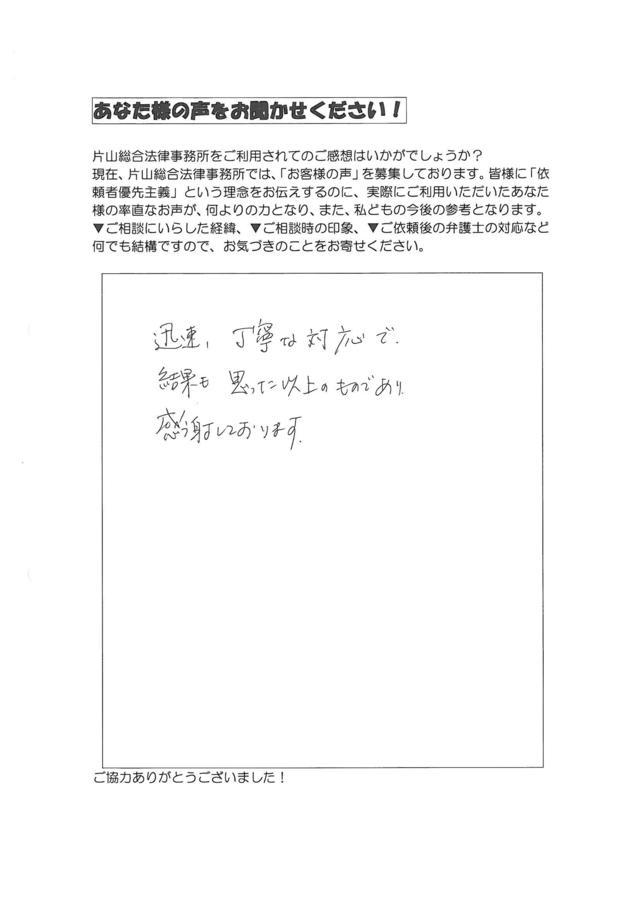 あなた様の声をお聞かせください！
片山総合法律事務所をご利用されてのご感想はいかがでしょうか？
現在、片山総合法律事務所では、「お客様の声」を募集しております。皆様に「依
頼者優先主義」という理念をお伝えするのに、実際にご利用いただいたあなた
様の率直なお声が、何よりの力となり、また、私どもの今後の参考となります。
▼ご相談にいらした経緯、▼ご相談時の印象、▼ご依頼後の弁護士の対応など
何でも結構ですので、お気づきのことをお寄せください。
迅速、丁寧な対応で、
結果も思った以上のものであり
感謝しております。
ご協力ありがとうございました！